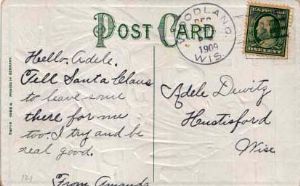 POST CARD
WOODLAND
DEC
1909
WIS
Hello, Adele.
Tell Santa Claus
to leave some
there for me
too. I try and be
real good.
From Amanda
Adele Dewitz
Hustisford
Wisc